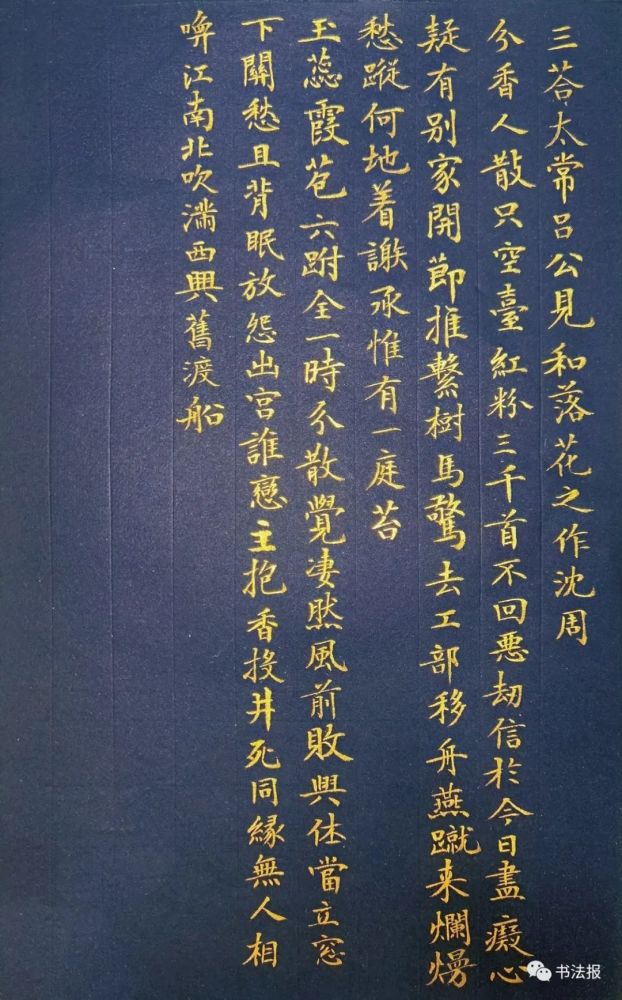 三荅太常吕公見和落花之作沈周
分香人散只空臺紅粉三千首不回惡劫信於今日盡癡心
疑有别家開節推繫樹馬驚去工部移舟燕蹴来爛熳
愁蹤何地着謝承惟有一庭苔
玉蕊霞苞六跗全一時分散覺凄然風前敗興休當立窓
下關愁且背眠放怨出宫誰戀主抱香投井死同緣無人相
喚江南北吹滿西興舊渡船
书法报